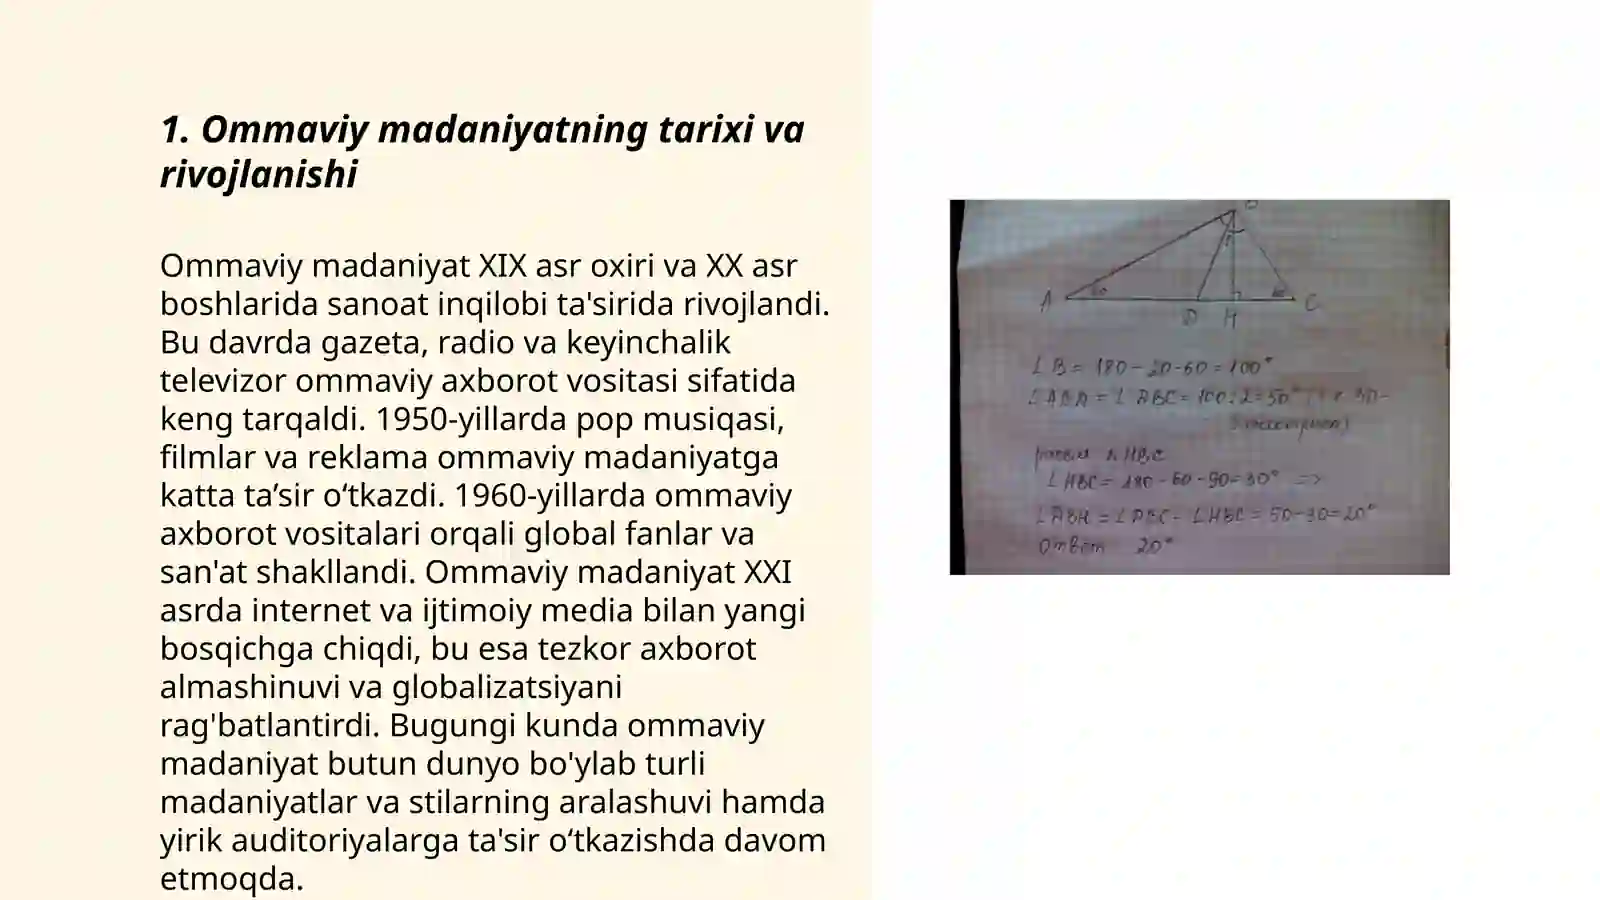 1. Ommaviy madaniyatning tarixi va
rivojlanishi
Ommaviy madaniyat XIX asr oxiri va XX asr
boshlarida sanoat inqilobi ta'sirida rivojlandi.
Bu davrda gazeta, radio va keyinchalik
televizor ommaviy axborot vositasi sifatida
keng tarqaldi. 1950-yillarda pop musiqasi,
filmlar va reklama ommaviy madaniyatga
katta ta’sir o‘tkazdi. 1960-yillarda ommaviy
axborot vositalari orqali global fanlar va
san'at shakllandi. Ommaviy madaniyat XXI
asrda internet va ijtimoiy media bilan yangi
bosqichga chiqdi, bu esa tezkor axborot
almashinuvi va globalizatsiyani
rag'batlantirdi. Bugungi kunda ommaviy
madaniyat butun dunyo bo'ylab turli
madaniyatlar va stilarning aralashuvi hamda
yirik auditoriyalarga ta'sir o‘tkazishda davom
etmoqda.
A
D H
C
∠B = 180 - 20 - 60 = 100°
= 100:2 = 50°
△ HBC
∠HBC = 180 - 60 - 90 = 30° =>
∠HBC = 50 - 30 = 20°
Ответ 20°